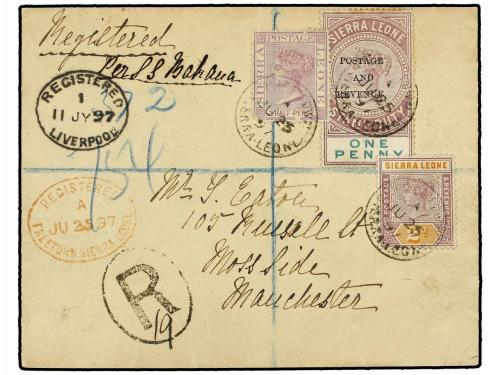 Registered
Per SS Bakana
REGISTERED
1
11 JY 97
LIVERPOOL
SIERRA
POSTAGE
LEONE
HALF PENNY
SIERRA LEONE
POSTAGE
AND
REVENUE
ONE
PENNY
SIERRA LEONE
POSTAGE
& REVENUE
REGISTERED
A
JU 25 97
FREETOWN, SIERRA LEONE
Mr. S. Eaton
105 Russell St
Moss Side
Manchester
R
19